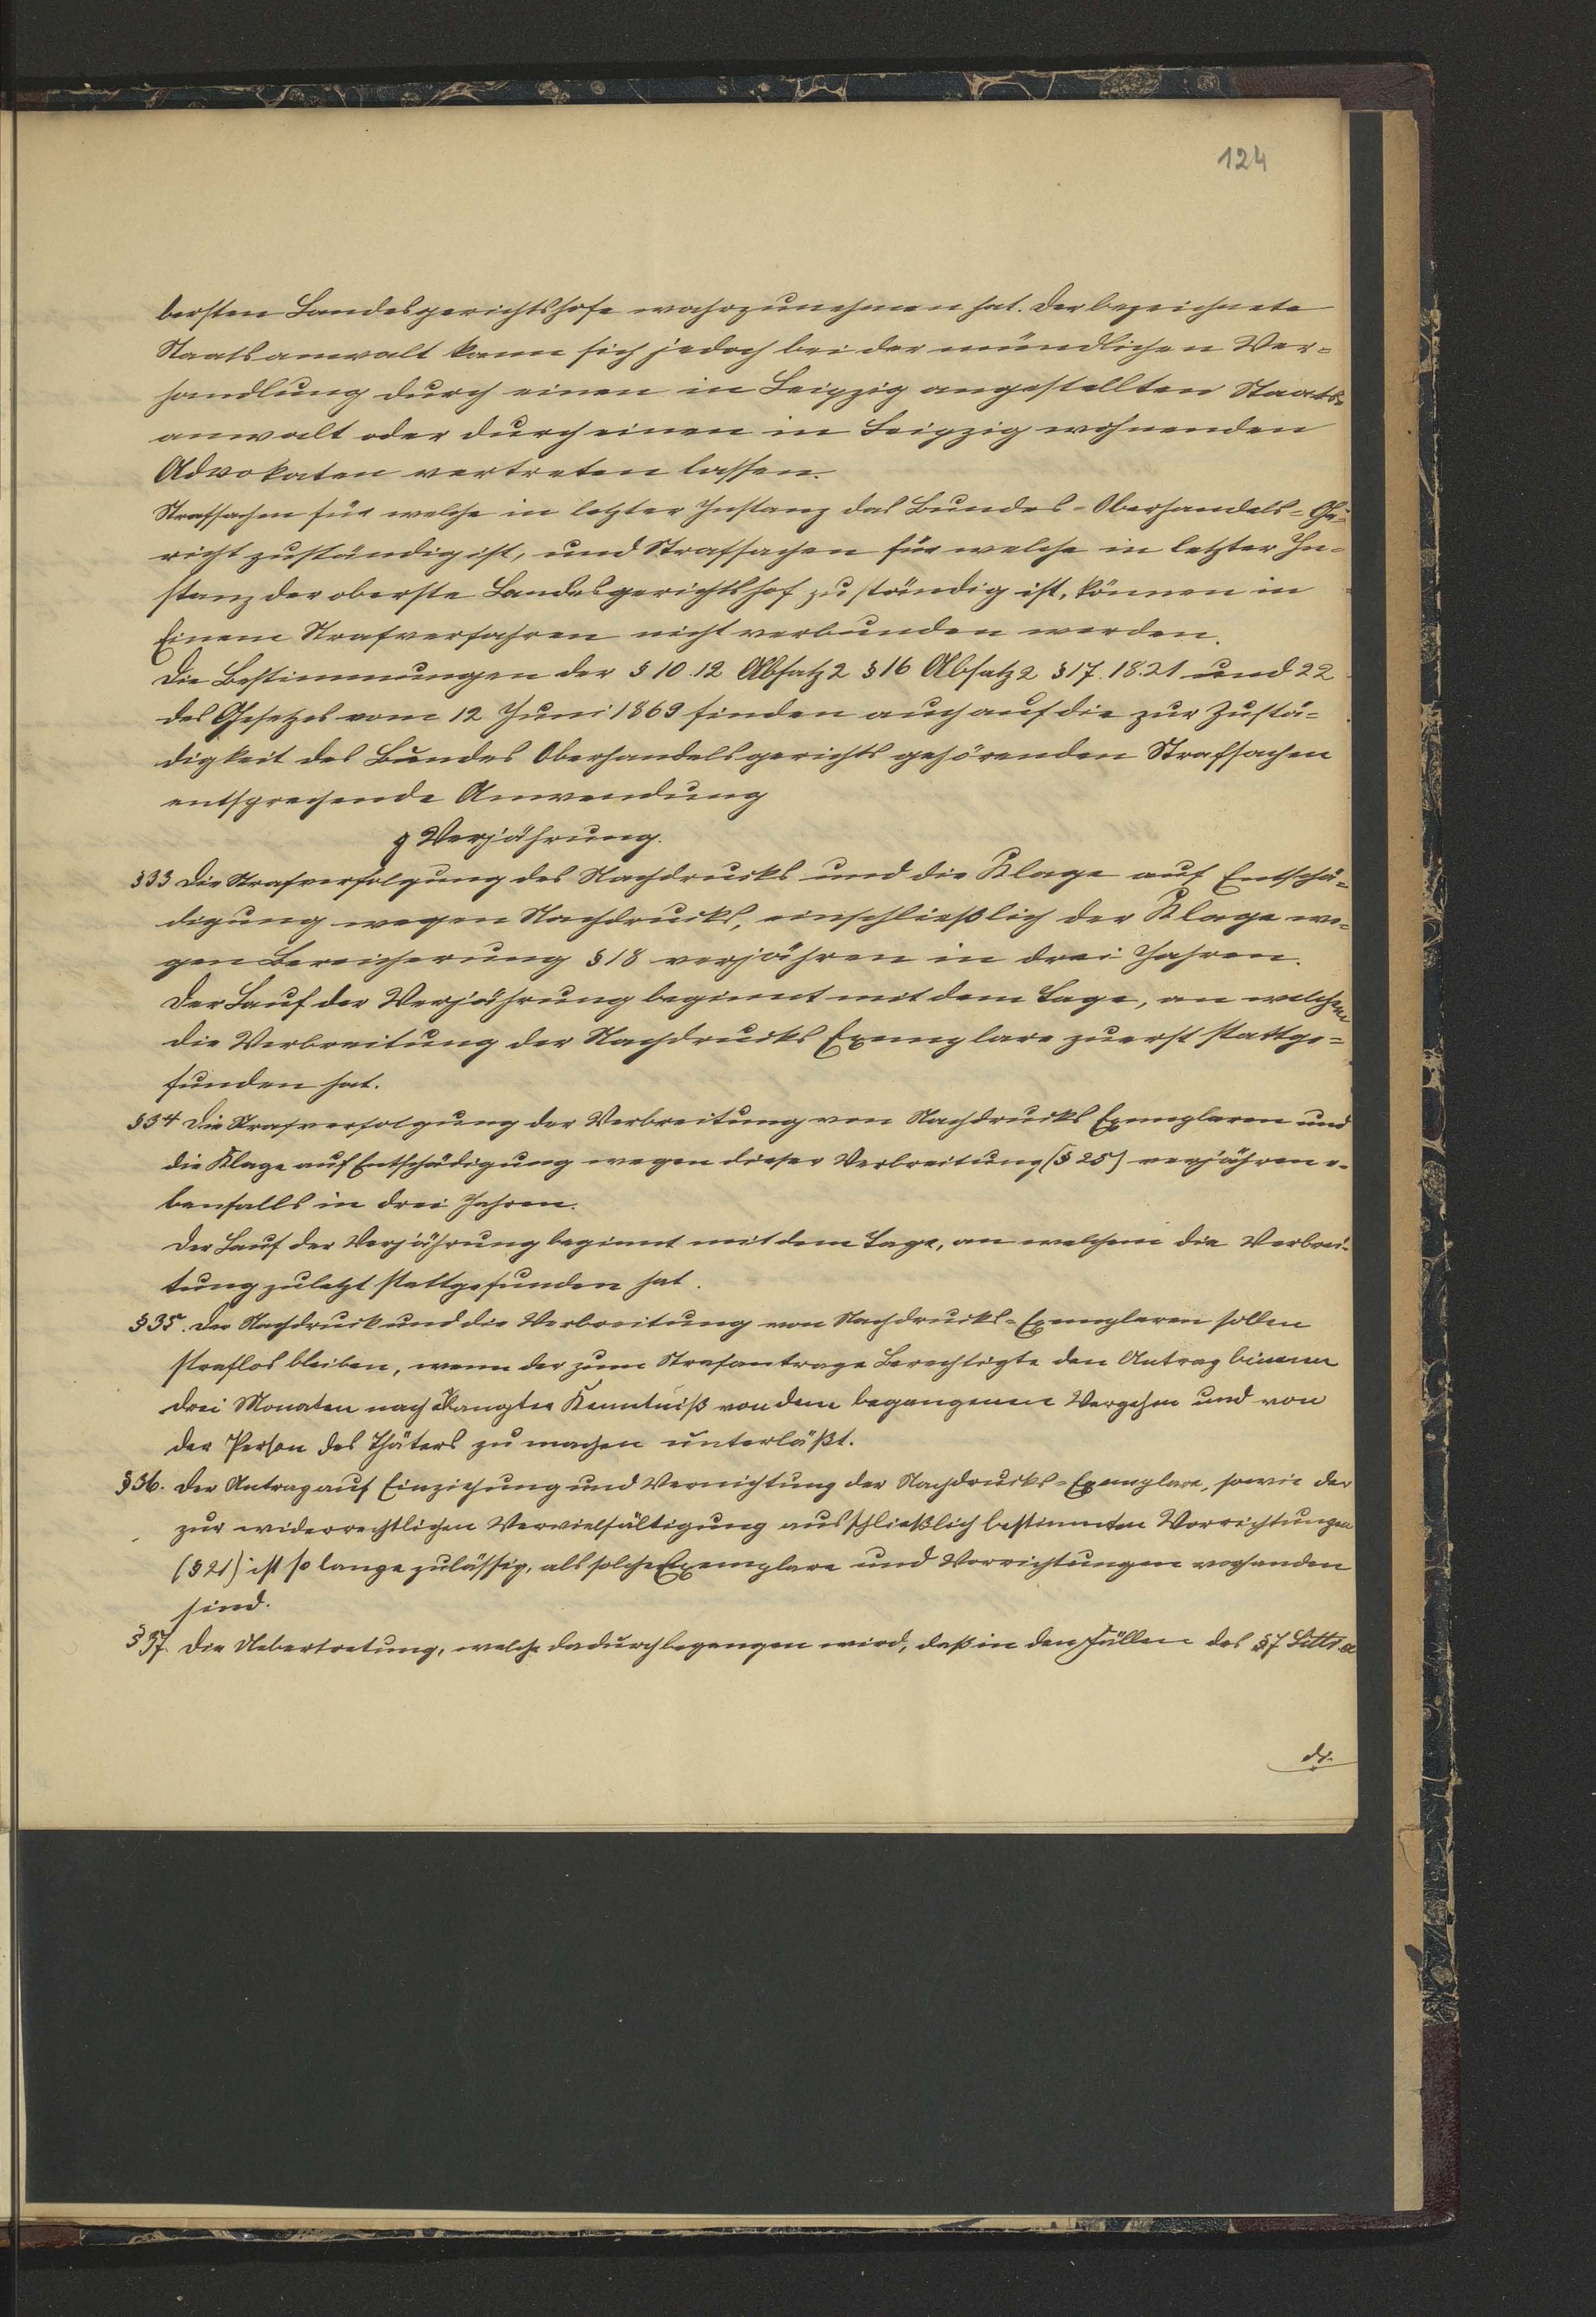 124
bersten Landesgerichtshofe wahrzunehmen hat. Der bezeichnete
Staatsanwalt kann sich jedoch bei der mündlichen Ver=
handlung durch einen in Leipzig angestellten Staats=
anwalt oder durch einen in Leipzig wohnenden
Advokaten vertreten lassen.
Strafsachen für welche in letzter Instanz das Bundes=Oberhandels=Ge=
richt zuständig ist, und Strafsachen für welche in letzter In=
stanz der oberste Landesgerichtshof zuständig ist, können in
Einem Strafverfahren nicht verbunden werden.
Die Bestimmungen der § 10. 12 Absatz 2 § 16 Absatz 2 § 17. 18. 21 und 22
des Gesetzes vom 12 Juni 1869 finden auch auf die zur Zustä=
digkeit des Bundes Oberhandelsgerichts gehörenden Strafsachen
entsprechende Anwendung
g Verjährung.
§ 33 Die Strafverfolgung des Nachdrucks und die Klage auf Entschä=
digung wegen Nachdrucks, einschließlich der Klage we=
gen Bereicherung § 18 verjähren in drei Jahren.
Der Lauf der Verjährung beginnt mit dem Tage, an welchem
die Verbreitung der Nachdrucks Exemplare zuerst stattge=
funden hat.
§ 34 Die Strafverfolgung der Verbreitung von Nachdrucks Exemplaren und
die Klage auf Entschädigung wegen dieser Verbreitung (§ 25) verjähren e=
benfalls in drei Jahren.
Der Lauf der Verjährung beginnt mit dem Tage, an welchem die Verbrei=
tung zuletzt stattgefunden hat.
§ 35. Der Nachdruck und die Verbreitung von Nachdrucks=Exemplaren sollen
straflos bleiben, wenn der zum Strafantrage Berechtigte den Antrag binnen
drei Monaten nach erlangter Kenntniß von dem begangenen Vergehen und von
der Person des Thäters zu machen unterläßt.
§ 36. Der Antrag auf Einziehung und Vernichtung der Nachdrucks=Exemplare, sowie der
zur widerrechtlichen Vervielfältigung ausschließlich bestimmten Vorrichtungen
(§ 21) ist so lange zulässig, als solche Exemplare und Vorrichtungen vorhanden
sind.
§ 37. Die Uebertretung, welche dadurch begangen wird, daß in den Fällen des § 7 Littr a